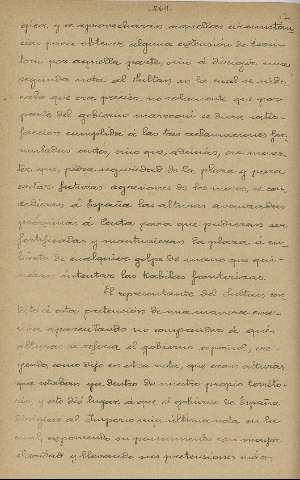 gica, y a aprovechar aquellas circunstan
cias para obtener alguna extensión de terri
torio por aquella parte, sino á dirigir una
segunda nota al Sultan en la cual se
que era preciso no solamente que por
parte del gobierno marroquí se diera satis-
faccion cumplida á las tres reclamaciones for
muladas antes, sino que, además, era menes
ter que, para seguridad de la plaza y para
evitar futuras agresiones de los moros, se con
cediesen á España las alturas avanzadas
próximas á Ceuta para que pudieran ser
fortificadas y mantuvieran la plaza á cu
bierto de cualquier golpe de mano que qui-
sieran intentar las Kabilas fronterizas.
El representante del Sultan con
testó á esta pretension de una manera
aparentando no comprender á qué
alturas se referia el gobierno español,
como dijo en otra nota, que eran alturas
que estaban ya dentro de nuestro propio territo-
rio, y esto dió lugar á que el gobierno de España
dirigiese al Imperio una última nota en la
cual, exponiendo su pensamiento con mayor
claridad y llevando sus pretensiones más